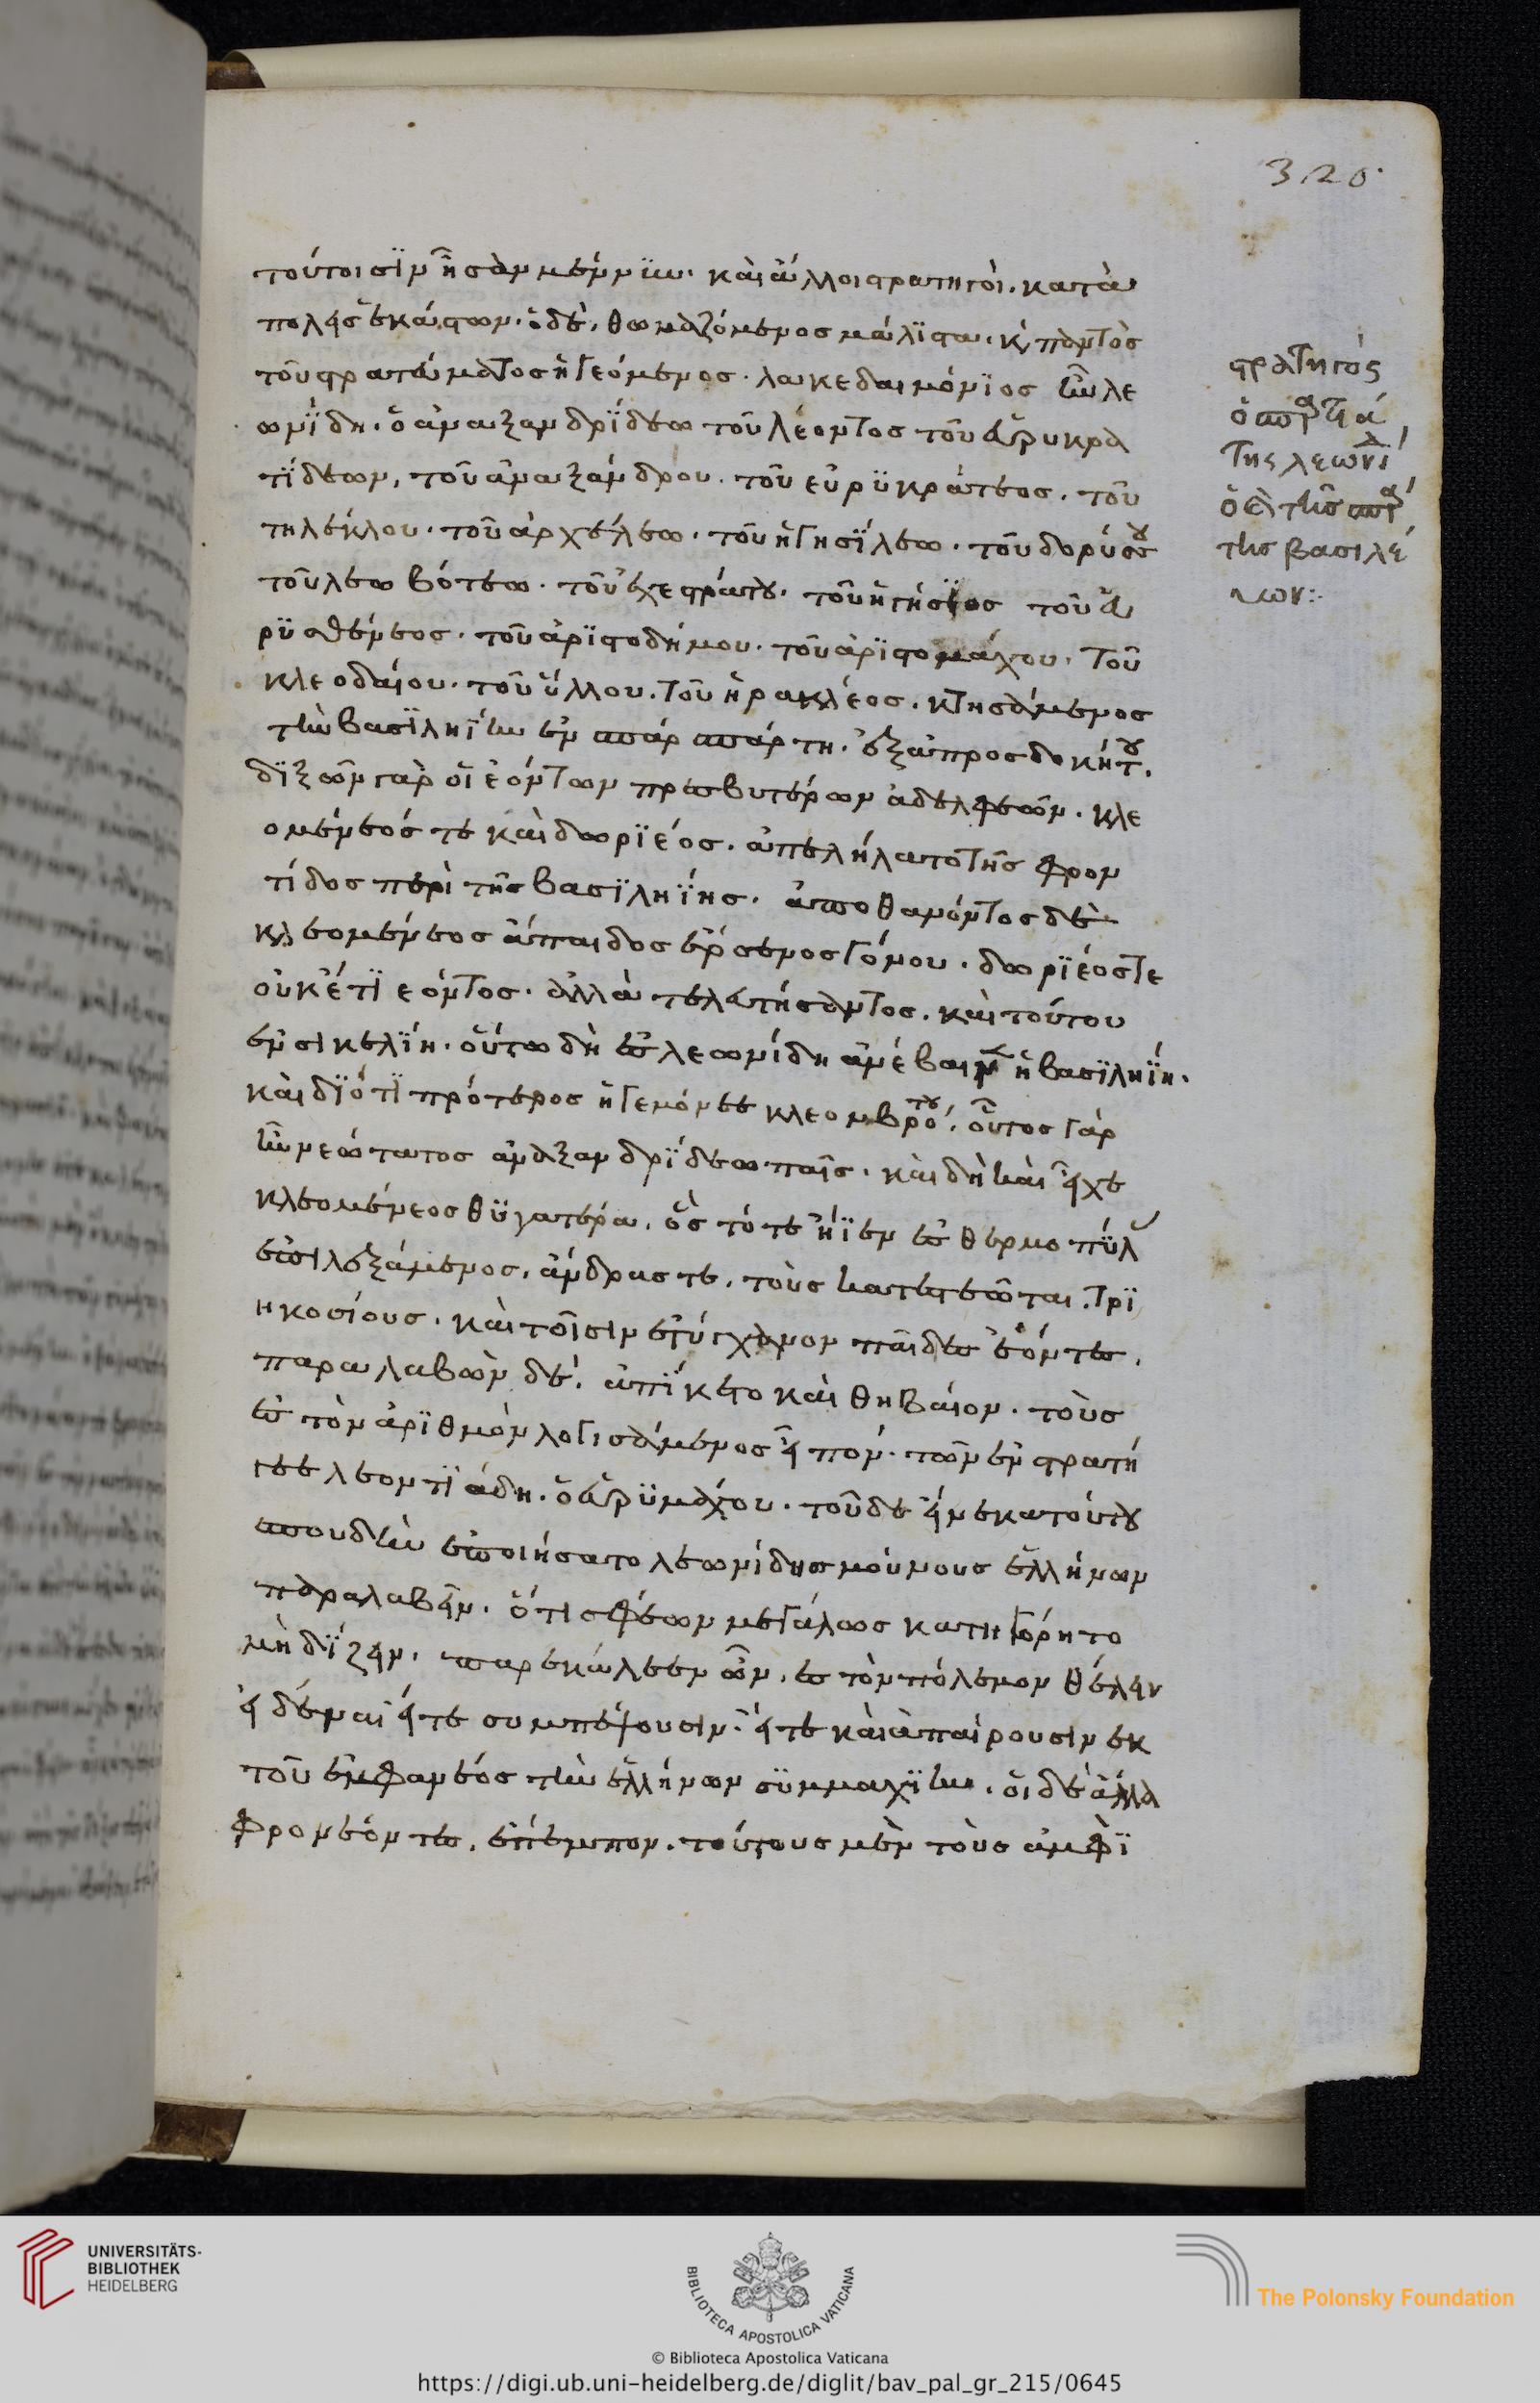 320
τούτοισϊν ἦσαν μέν νϋν. καὶ ἄλλοι στρατηγοὶ. κατὰ
πολεις ἑκάστων. ὁ δὲ, θωμαζόμενος μάλϊστα, κ παντὸς
τοῦ στρατεύματος ἡγεόμενος. λακεδαιμόνϊος ἦν λε
ωνίδη. ὁ ἀναξανδρϊδεω τοῦ λέοντος τοῦ εὐρυκρα
τϊδεων, τοῦ ἀναξάνδρου. τοῦ εὐρϋκράτεος. τοῦ
τηλέκλου. τοῦ ἀρχέλεω. τοῦ ἡγησϊλεω. τοῦ δορύσσου
τοῦ λεωβότεω. τοῦ ἐχεστράτου. τοῦ ἡγήσϊος τοῦ εὐ
ρϋσθένεος. τοῦ ἀρϊστοδήμου. τοῦ ἀρϊστομάχου. τοῦ
κλεοδαίου. τοῦ ὕλλου. τοῦ ἡρακλέος. κτησάμενος
τὴν βασϊληΐην ἐν σπάρ σπάρτη. ἐξ ἀπροσδοκήτου.
διξῶν γὰρ οἱ ἐόντων πρεσβυτέρων ἀδελφεῶν. κλε
ομένεός τε καὶ δωρϊέος. ἀπελήλατο τῆς φρον
τίδος περὶ τῆς βασϊληΐης. ἀποθανόντος δὲ
κλεομένεος ἄπαιδος ἔρσενος γόνου. δωρϊέος τε
οὐκέτϊ ἐόντος. ἀλλὰ τελευτήσαντος. καὶ τούτου
ἐν σικελϊη. οὕτω δὴ ἐς λεωνίδη ἀνέβαινε ἡ βασϊληΐη.
καὶ διότϊ πρότερος ἡγεμόνεε κλεομβρότου. οὗτος γὰρ
ἦν νεώτατος ἀναξανδρϊδεω παῖς. καὶ δὴ καὶ εἶχε
κλεομένεος θϋγατέρα. ὃς τότε ἤϊεν ἐς θερμοπύλ
ἐπιλεξάμενος, ἄνδρας τε, τοὺς κατεστεῶτας τρϊ
ηκοσίους. καὶ τοῖσιν ἐτύγχανον παῖδες ἐόντες.
παραλαβὼν δὲ, ἀπίκετο καὶ θηβαίον. τοὺς
ἐς τὸν ἀρϊθμὸν λογισάμενος εἶπον. τῶν ἐν στρατή
γεε λεοντϊάδη. ὁ εὐρϋμάχου. τοῦδε εἵνεκα τούτου
σπουδὴν ἐποιήσατο λεωνίδης μούνους ἑλλήνων
παραλαβεῖν. ὅτι σφέων μεγάλως κατηγόρητο
μηδϊζειν. παρεκάλεεν ὦν, ἐς τὸν πόλεμον θέλειν
εἰδέναι εἴτε συμπέψουσιν. εἴτε καὶ ἀπαίρουσιν ἐκ
τοῦ ἐμφανέος τὴν ἑλλήνων σϋμμαχϊην. οἱ δὲ ἄλλα
φρονεόντες, ἔπεμπον. τούτους μὲν τοὺς ἀμφὶ
στρατηγός
ὁ σπαρτιά
της λεωνί
ὁ ἐκ τῆς σπάρ
της βασιλέ
ων:
UNIVERSITÄTS-
BIBLIOTHEK
HEIDELBERG
BIBLIOTECA APOSTOLICA VATICANA
© Biblioteca Apostolica Vaticana
The Polonsky Foundation
https://digi.ub.uni-heidelberg.de/diglit/bav_pal_gr_215/0645